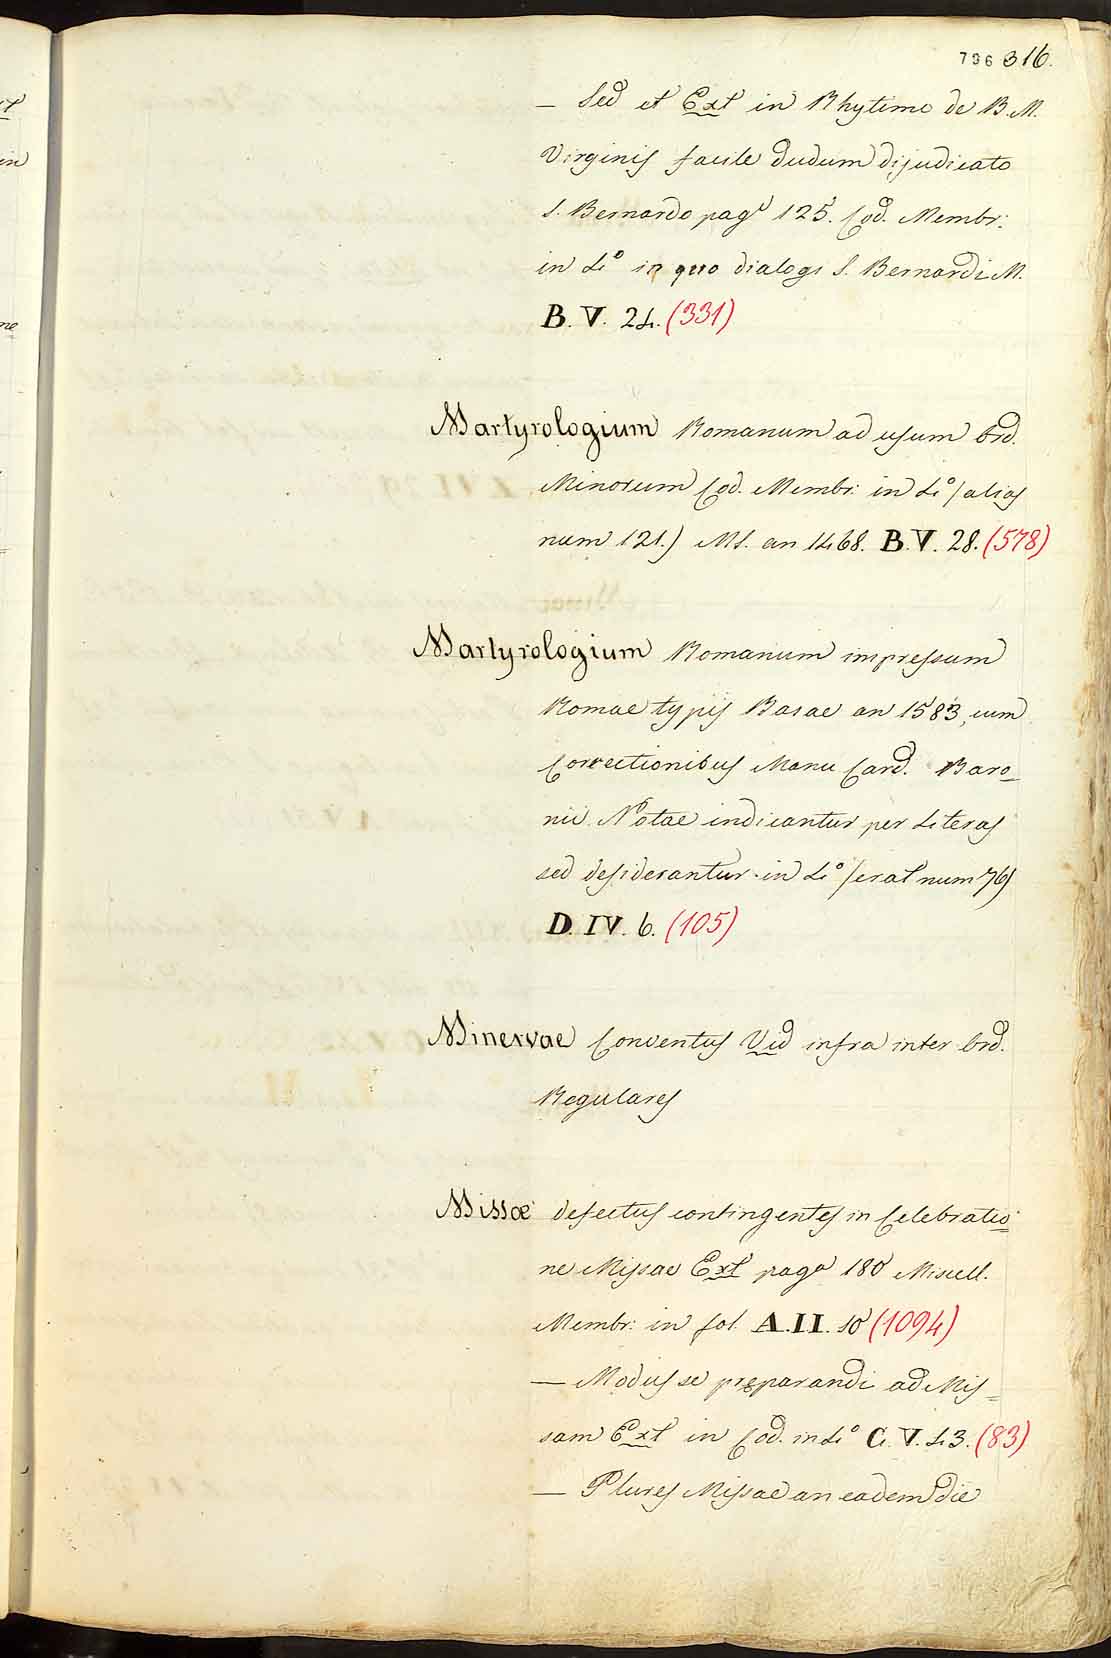 796 316.
— Sed et Ext in Rhytimo de B. M.
Virginis facile dudum dijudicato
S. Bernardo pagª 125. Cod. Membr:
in 4º in quo dialogi S. Bernardi M.
B. V. 24. (331)
Martyrologium Romanum ad usum Ord.
Minorum Cod. Membr: in 4º (alias
num 121.) MS. an 1468. B. V. 28. (578)
Martyrologium Romanum impressum
Romae typis Basae an 1583, cum
Correctionibus Manu Card. Baro_
nii. Notae indicantur per Literas
sed desiderantur in 4º (erat num 76)
D. IV. 6. (105)
Minervae Conventus Vid infra inter Ord.
Regulares
Missae defectus contingentes in Celebratio=
ne Missae Ext pagª 180 Miscell.
Membr: in fol. A. II. 10 (1094)
— Modus se praeparandi ad Mis=
sam Ext in Cod. in 4º C. V. 43. (83)
— Plures Missae an eadem die